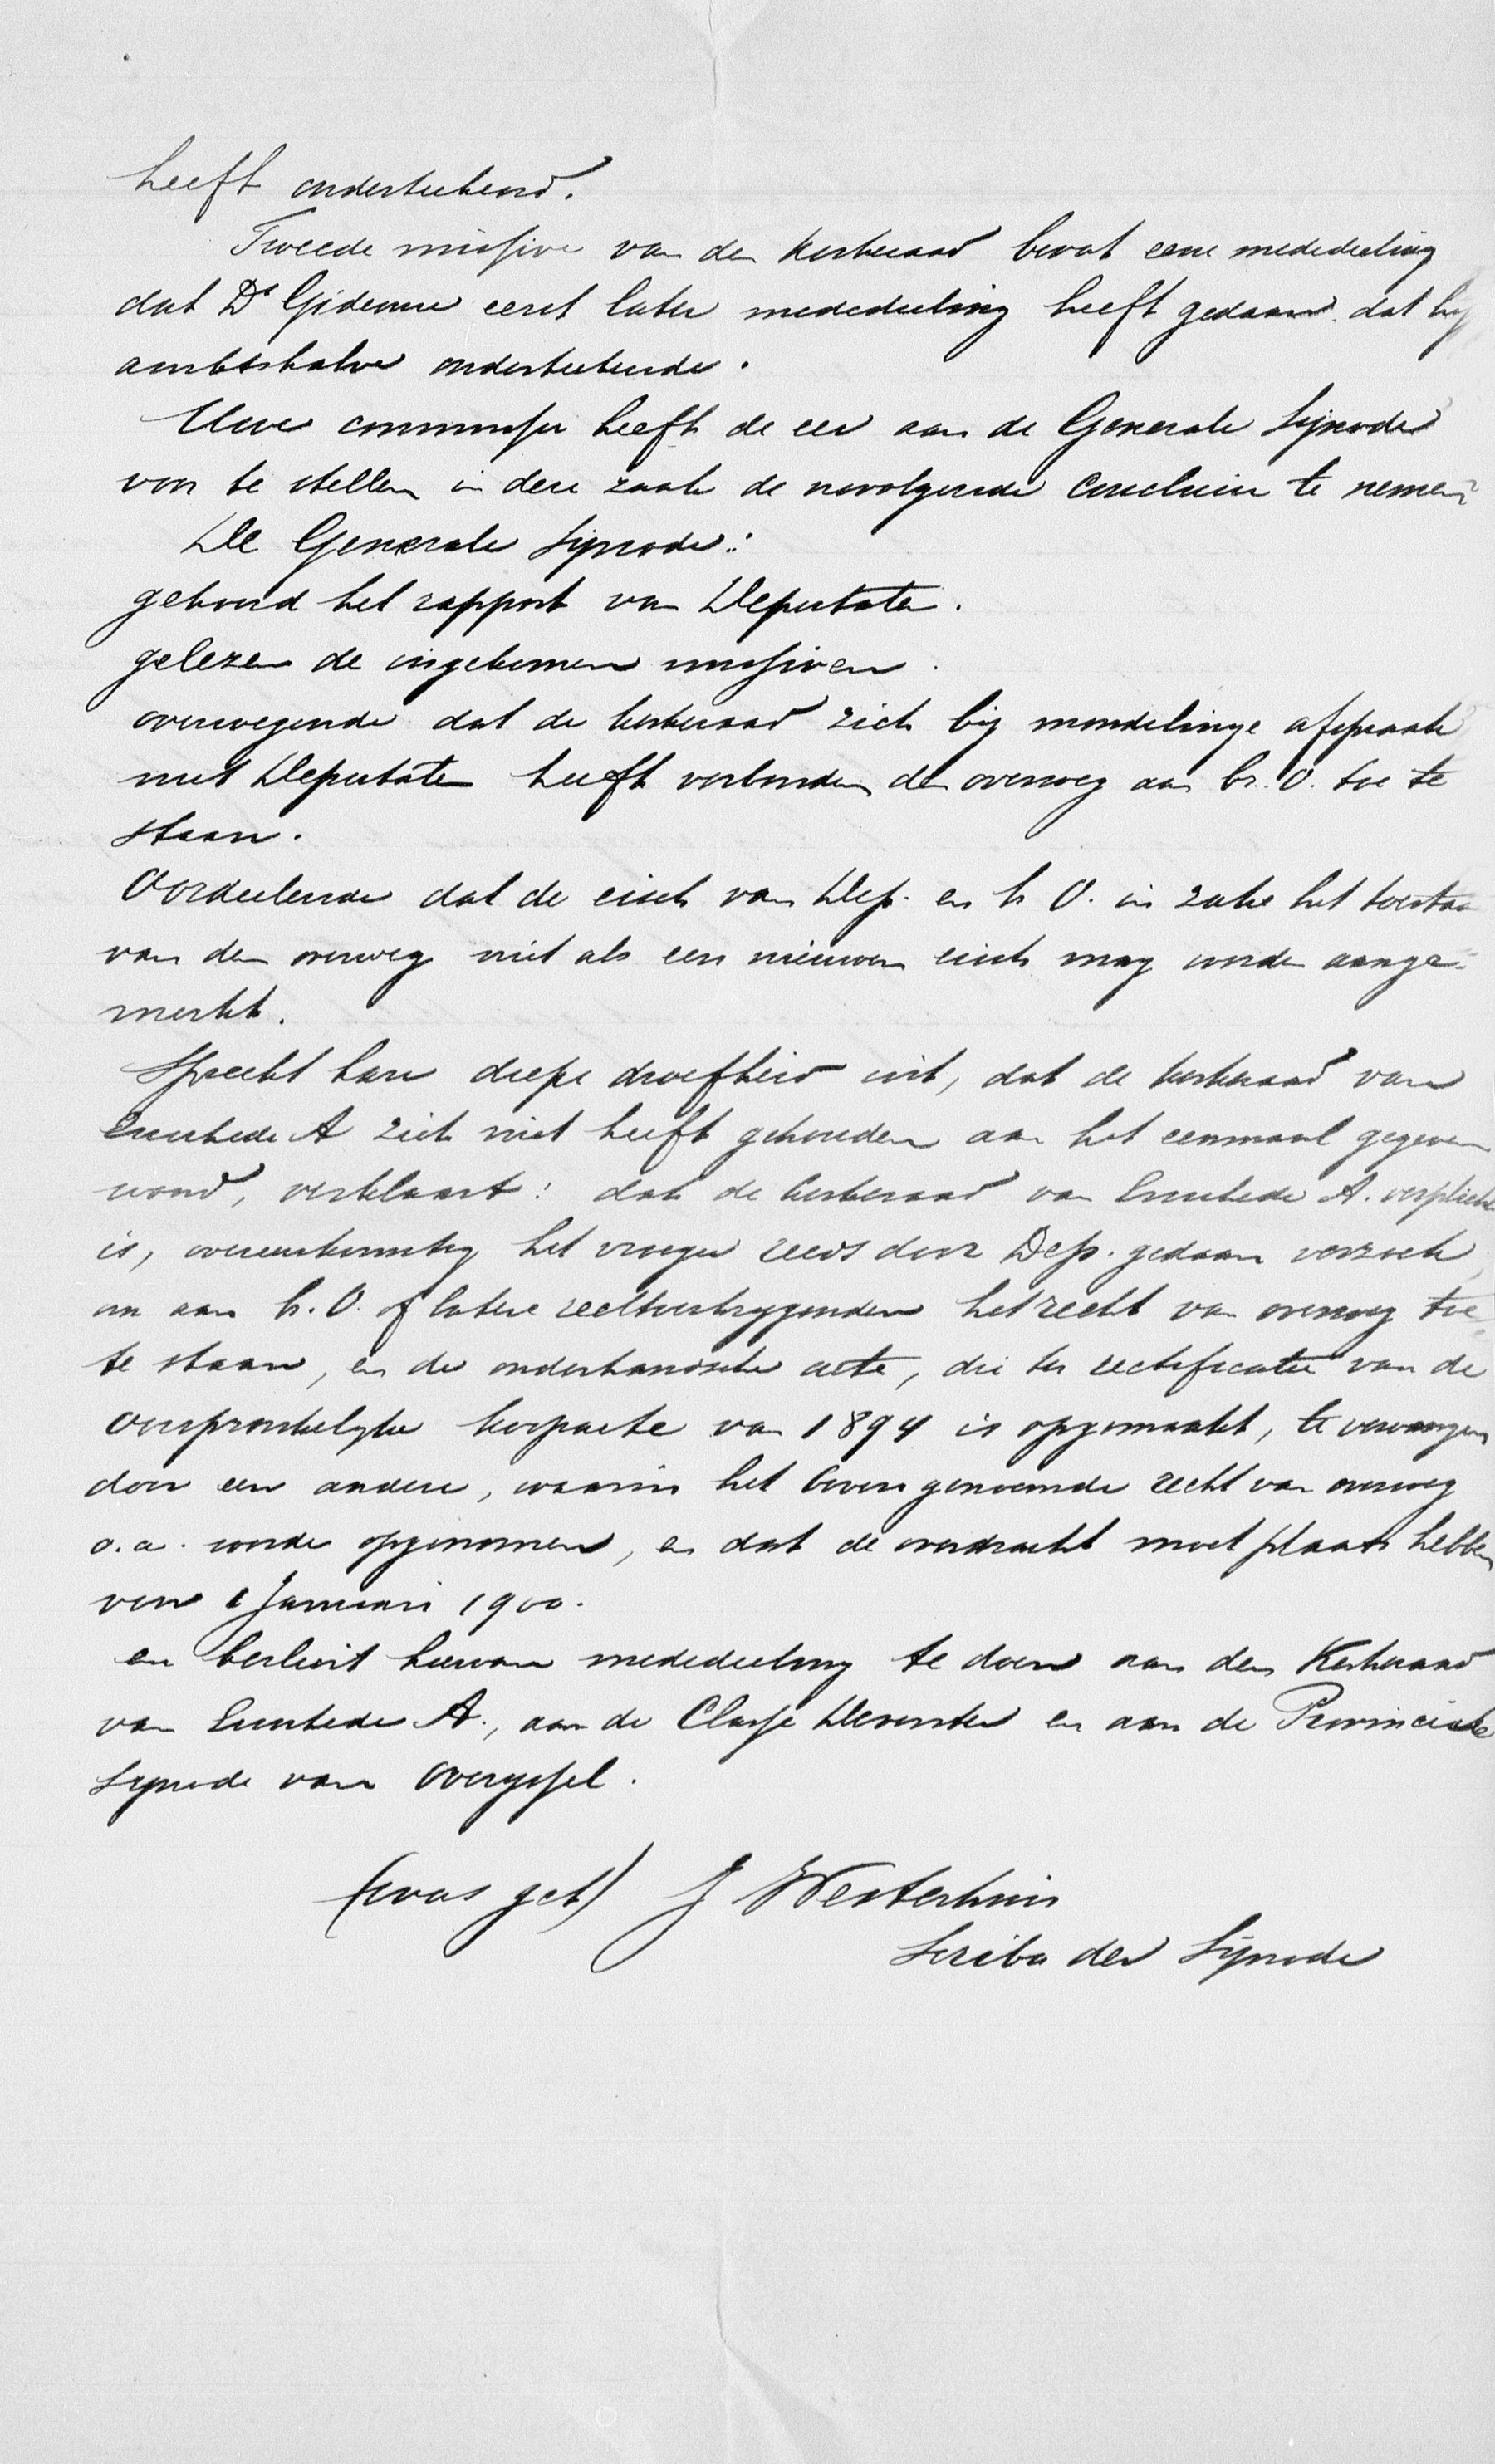 heeft onderteekend.
Tweede missive van den kerkeraad bevat eene mededeeling
dat Ds Gideonse eerst later mededeeling heeft gedaan dat hij
ambtshalve onderteekende.
Uwe commissie heeft de eer aan de Generale Synode
voor te stellen in deze zaak de navolgende conclusie te nemen:
De Generale Synode:
gehoord het rapport van Deputaten.
gelezen de ingekomen missiven.
overwegende dat de kerkeraad zich bij mondelinge afspraak
met Deputaten heeft verbonden den overweg aan br. O. toe te
staan.
Oordeelende dat de eisch van Dep. en br O. in zake het toestaan
van den overweg niet als een nieuwen eisch mag worden aange-
merkt.
Spreekt hare diepe droefheid uit, dat de kerkeraad van
Enschede A zich niet heeft gehouden aan het eenmaal gegeven
woord, verklaart: dat de kerkeraad van Enschede A. verplicht
is, overeenkomstig het vroeger reeds door Dep. gedaan verzoek,
om aan br. O. of latere rechtverkrygenden het recht van overweg toe
te staan, en de onderhandsche acte, die ter rectificatie van de
oorspronkelyke koopacte van 1894 is opgemaakt, te vervangen
door een andere, waarin het boven genoemde recht van overweg
o.a. worde opgenomen, en dat de overdracht moet plaats hebben
voor 1 Januari 1900.
en besluit hiervan mededeeling te doen aan den Kerkeraad
van Enschede A., aan de Classe Deventer en aan de Provinciale
Synode van Overyssel.
(was get) J Westerhuis
Scriba der Synode